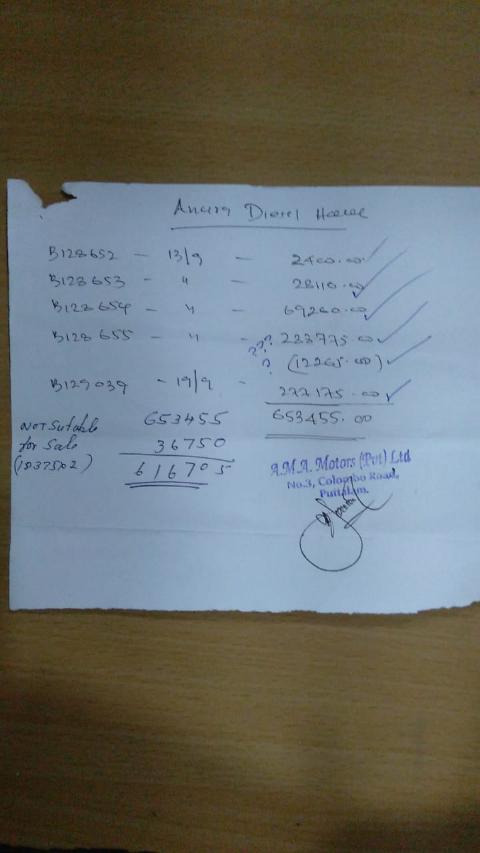 Anura Diesel House
B128652 - 13/9 - 2400.00
B128653 - " - 28110.00
B128654 - " - 69260.00
B128655 - " - ??? 288775.00
? (12265.00)
B129039 - 19/9 - 277175.00
653455 653455.00
Not Sutable
for Sale 36750
(1237502) 616705
A.M.A. Motors (Pvt) Ltd
No.3, Colombo Road,
Puttalam.